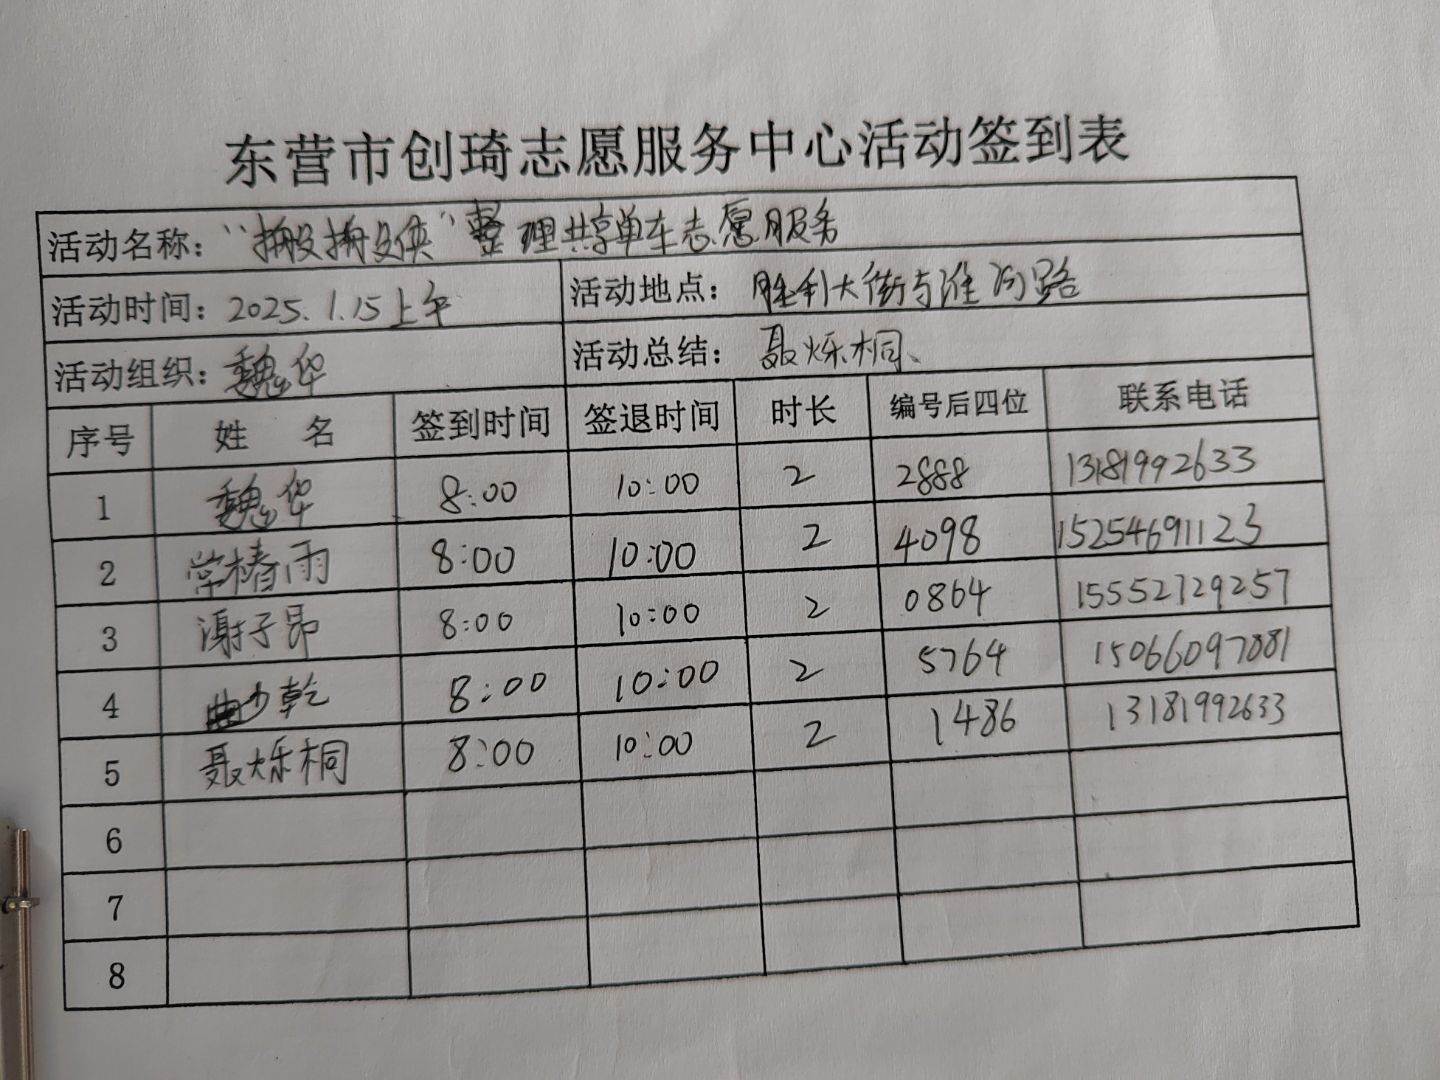 东营市创琦志愿服务中心活动签到表
活动名称：“搬搬侠”整理共享单车志愿服务
活动时间：2025.1.15上午 活动地点：胜利大街与淮河路
活动组织：魏华 活动总结：聂烁桐、
序号 姓 名 签到时间 签退时间 时长 编号后四位 联系电话
1 魏华 8:00 10:00 2 2888 13181992633
2 常椿雨 8:00 10:00 2 4098 15254691123
3 谢子昂 8:00 10:00 2 0864 15552729257
4 曲少乾 8:00 10:00 2 5764 15066097881
5 聂烁桐 8:00 10:00 2 1486 13181992633
6
7
8